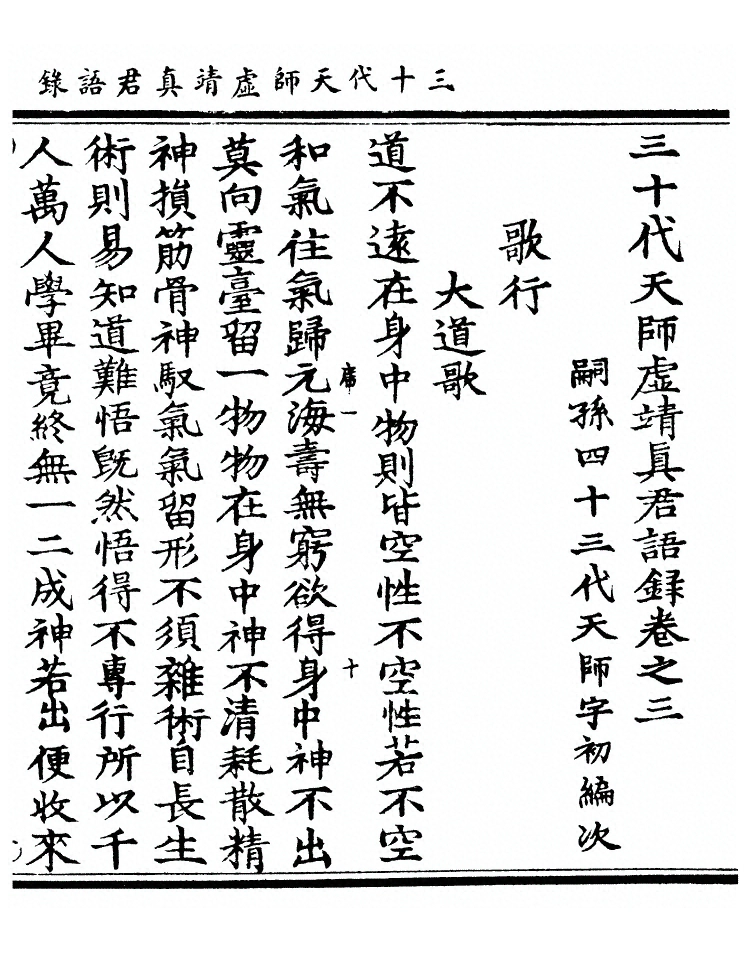 三十代天師虛靖真君語錄
三十代天師虛靖眞君語録卷之三
嗣孫四十三代天師字初編次
歌行
大道歌
道不遠在身中物則皆空性不空性若不空
和氣住氣歸元海壽無窮欲得身中神不出
席一
十
莫向靈臺留一物物在身中神不清耗散精
神損筋骨神馭氣氣留形不須雜術自長生
術則易知道難悟旣然悟得不專行所以千
人萬人學畢竟終無一二成神若出便收來